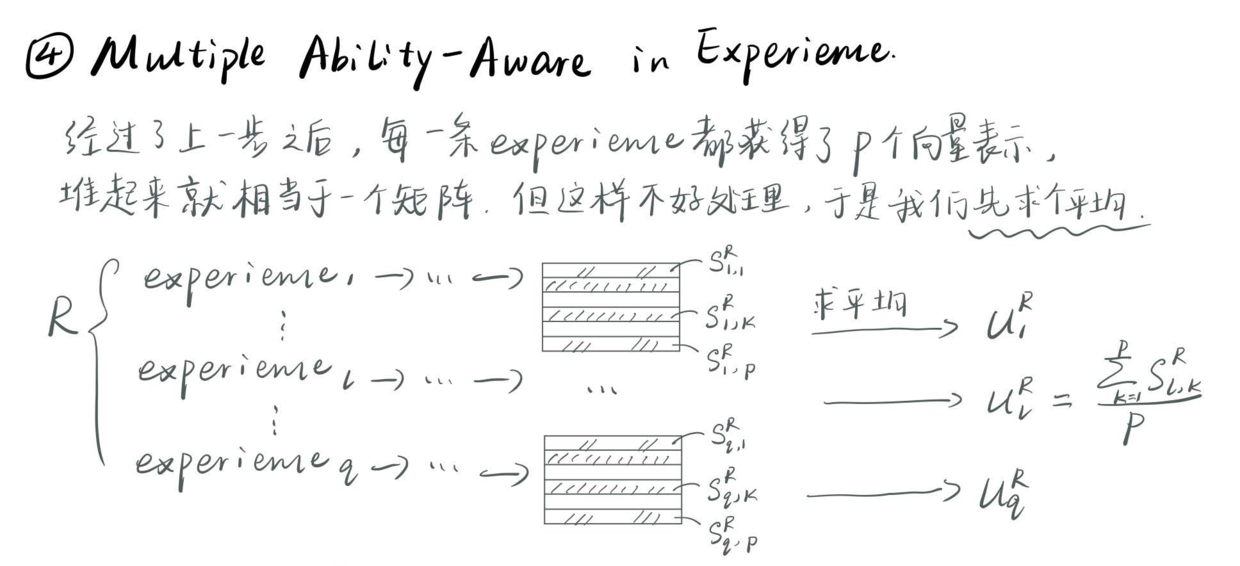 ④ Multiple Ability-Aware in Experieme.
经过了上一步之后，每一条experieme都获得了p个向量表示，
堆起来就相当于一个矩阵. 但这样不好处理，于是我们先求个平均.
R { experieme₁ → ... → S^R_{1,1} S^R_{1,K} S^R_{1,P} 求平均 → U^R_1
⋮
experieme_l → ... → ... → U^R_l = \frac{\sum_{k=1}^{P} S^R_{l,k}}{P}
⋮
experieme q → ... → S^R_{q,1} S^R_{q,K} S^R_{q,P} → U^R_q